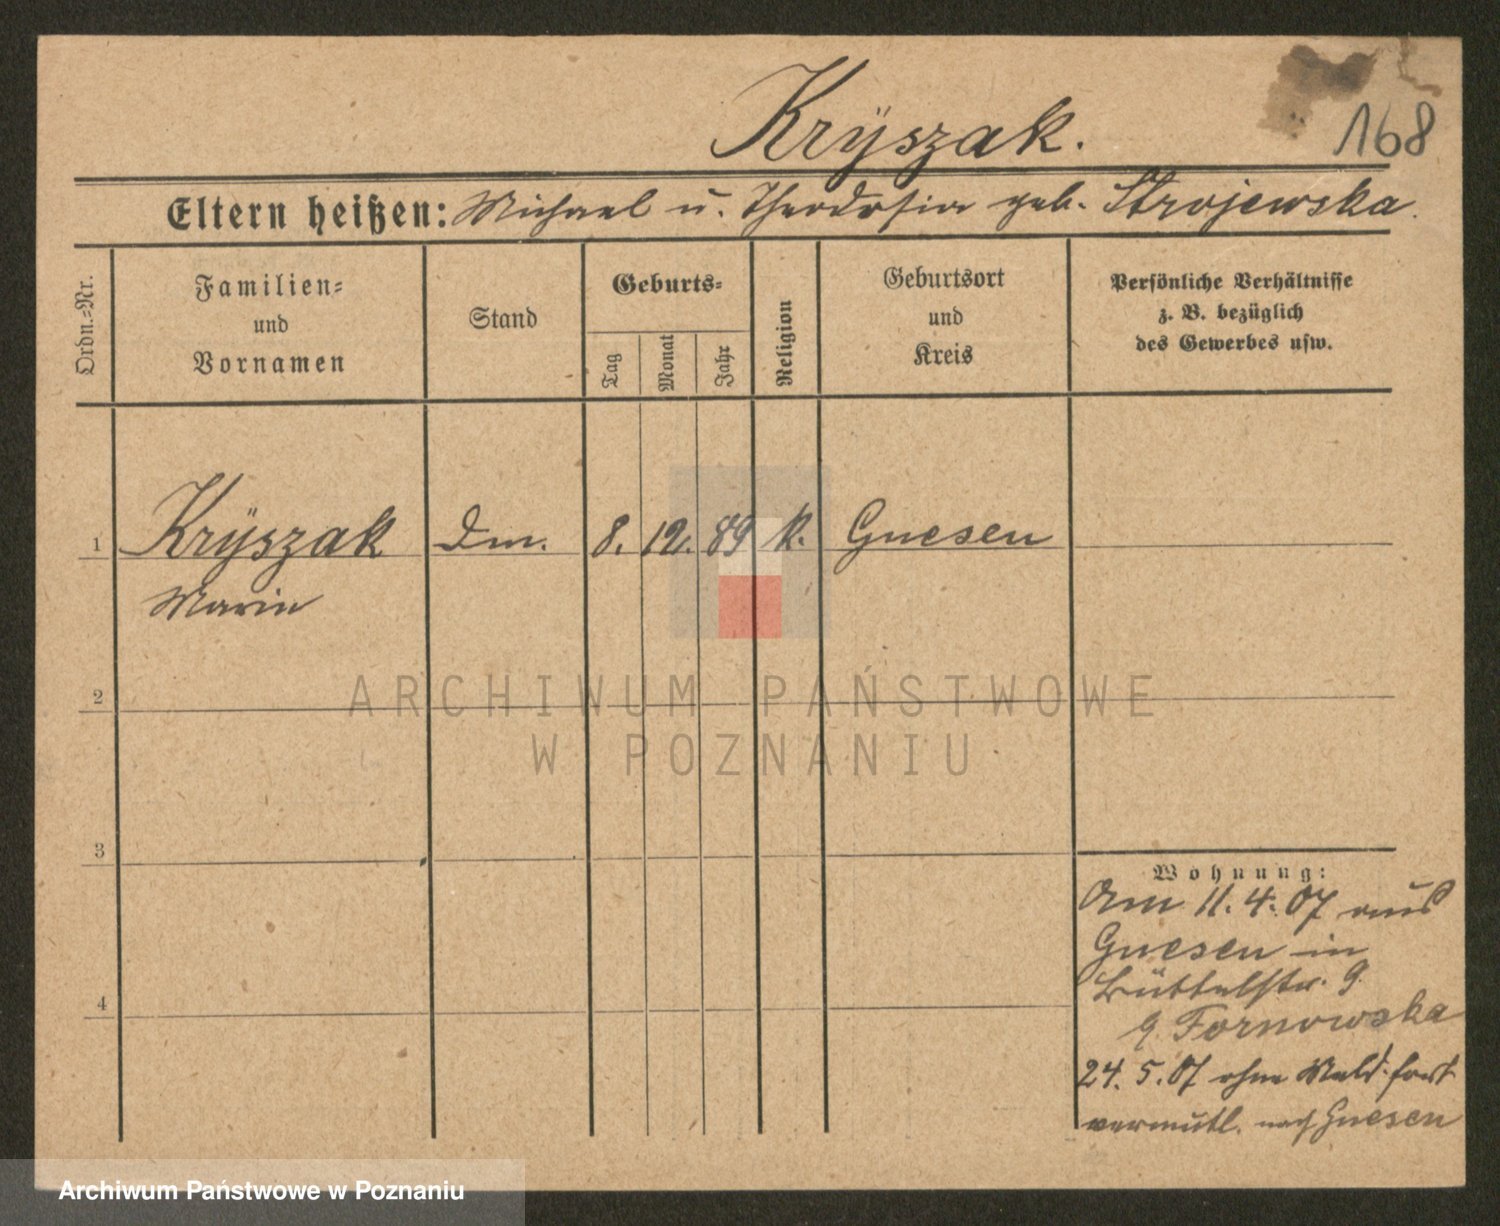 Krÿszak.
168
Eltern heißen: Michael u. Theodosia geb. Strojewska.
Ordn.-Nr.
Familien-
und
Vornamen
Stand
Geburts-
Tag
Monat
Jahr
Religion
Geburtsort
und
Kreis
Persönliche Verhältnisse
z. B. bezüglich
des Gewerbes usw.
1 Krÿszak Dm. 8. 12. 89 k. Gnesen
Marie
2
ARCHIWUM PAŃSTWOWE
W POZNANIU
3
Wohnung:
Am 11. 4. 07 aus
Gnesen in
Büttelstr. 9.
Fornowska
4
24. 5. 07 ohne Meld. fort
vermutl. nach Gnesen
Archiwum Państwowe w Poznaniu